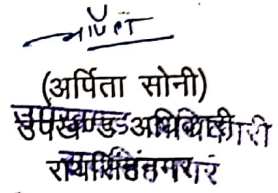 (अर्पिता सोनी)
उपखण्ड अधिकारी
रायसिंहनगर